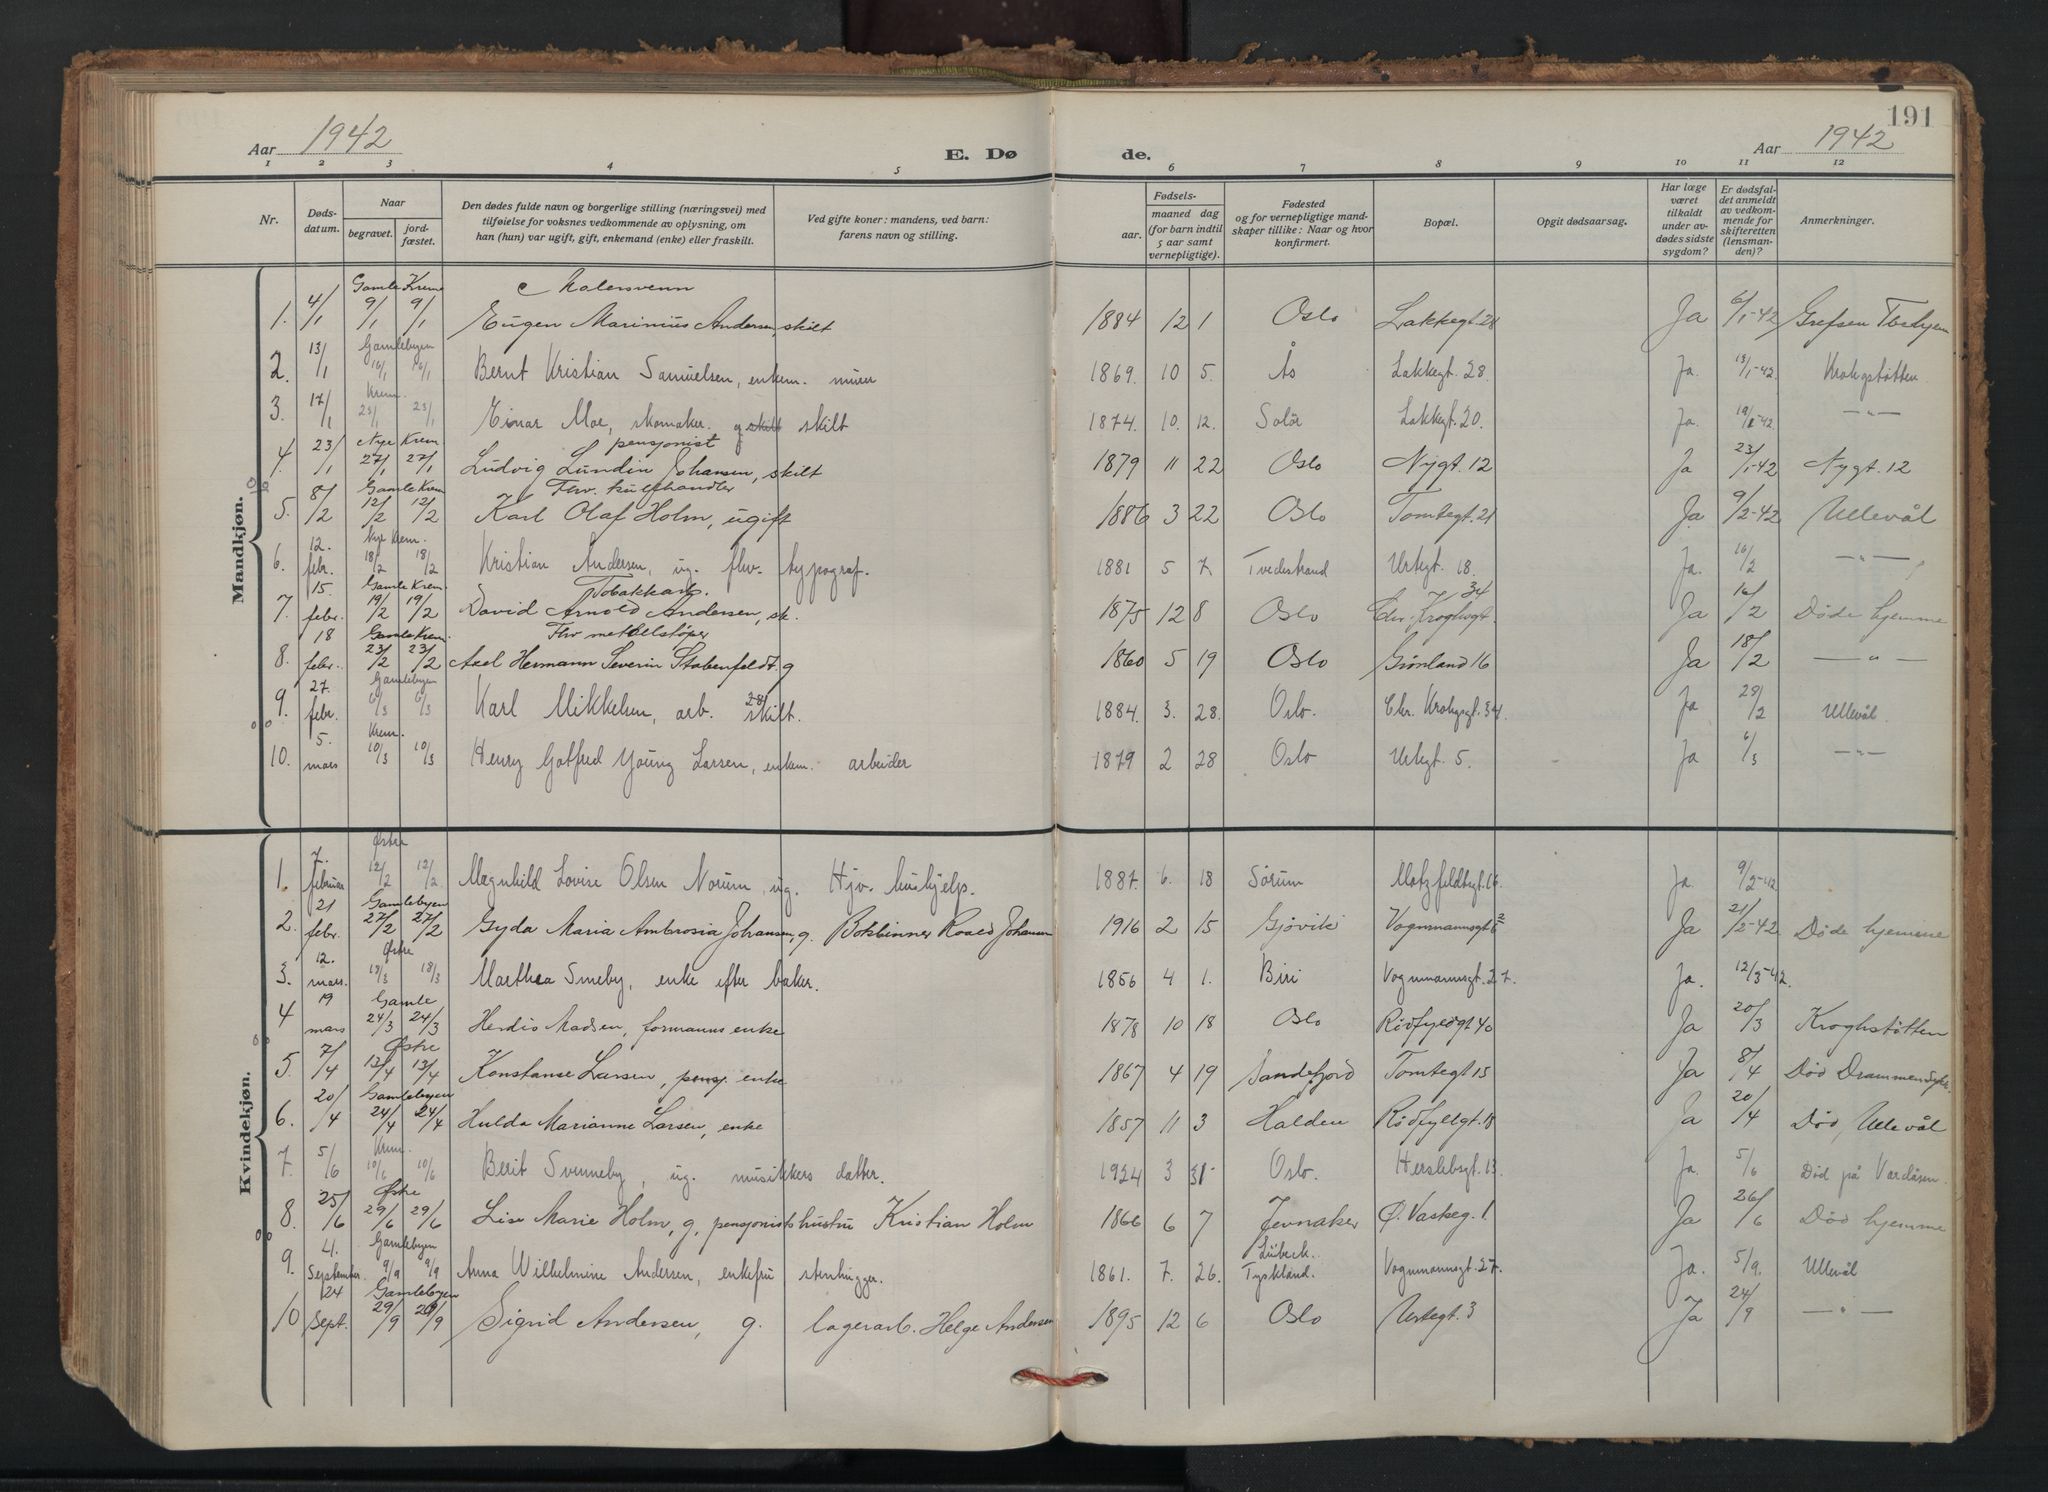 191
Aar 1942
E. Dø
de.
Aar 1942
1 2 3 4 5 6 7 8 9 10 11 12
Nr.
Døds-
datum.
Naar
begravet.
jord-
fæstet.
Den dødes fulde navn og borgerlige stilling (næringsvei) med
tilføielse for voksnes vedkommende av oplysning, om
han (hun) var ugift, gift, enkemand (enke) eller fraskilt.
Ved gifte koner: mandens, ved barn:
farens navn og stilling.
Fødsels-
aar.
maaned dag
(for barn indtil
5 aar samt
vernepligtige).
Fødested
og for vernepligtige mand-
skaper tillike: Naar og hvor
konfirmert.
Bopæl.
Opgit dødsaarsag.
Har læge
været
tilkaldt
under av-
dødes sidste
sygdom?
Er dødsfal-
det anmeldt
av vedkom-
mende for
skifteretten
(lensman-
den)?
Anmerkninger.
Mandkjøn.
Gamle Krem Malersvenn
1. 4/1 9/1 9/1 Eugen Marinius Andersen, skilt 1884 12 1 Oslo Lakkegt. 28 Ja 6/1-42 Grefsen Tbchjem
Gamlebyen
2. 13/1 16/1 16/1 Bernt Kristian Samuelsen, enkem. murer 1869. 10 5. Ås Lakkegt. 28. Ja. 13/1-42. Krohgstøtten.
Krem.
3. 17/1 23/1 23/1 Einar Moe, skomaker. g skilt skilt 1874. 10. 12. Solør Lakkegt. 20. Ja. 19/1-42. —"—
Nye Krem pensjonist
4. 23/1 27/1 27/1 Ludvig Lundin Johansen, skilt 1879 11 22 Oslo Nygt. 12 Ja 23/1-42 Nygt. 12
Gamle Krem Fhv. kullhandler
5. 8/2 12/2 12/2 Karl Olaf Holm, ugift 1886 3 22 Oslo Tomtegt. 21 Ja 9/2-42 Ullevål
Nye Krem.
6. 12. febr. 18/2 18/2 Kristian Andersen, ug. fhv. typograf. 1881 5 7. Tvedestrand Urtegt. 18. Ja. 16/2 —"—
Gamle Krem Tobakkarb. 34
7. 15. febr. 19/2 19/2 David Arnold Andersen, sk. 1875 12 8 Oslo Chr. Kroghsgt. Ja 16/2 Døde hjemme
Gamle Krem. Fhv metallstøper
8. 18 febr. 23/2 23/2 Axel Hermann Severin Stabenfeldt, g 1860 5 19 Oslo Grønland 16 Ja 18/2 —"—
Gamlebyen
9. 27. febr. 6/3 6/3 Karl Mikkelsen, arb. skilt. 28/ 1884. 3. 28. Oslo. Chr. Krohgsgt. 34. Ja 28/2 Ullevål.
Krem.
10. 5. mars 10/3 10/3 Henry Gotfred Young Larsen, enkem. arbeider 1879 2 28 Oslo Urtegt. 5. Ja 6/3 —"—
Kvindekjøn.
Østre
1. 7. februar 12/2 12/2 Magnhild Lovise Olsen Norum, ug. Hjv. hushjelp. 1887. 6. 18 Sørum Motzfeldtsgt. 16. Ja. 9/2-42
Gamlebyen
2. 21 febr. 27/2 27/2 Gyda Maria Ambrosia Johansen, g. Bokbinner Roald Johansen 1916 2 15 Gjøvik Vognmannsgt Ja 21/2-42 Døde hjemme
Østre
3. 12. mars. 18/3 18/3 Marthea Smeby, enke efter baker. 1856 4 1. Biri Vognmannsgt. 27. Ja. 12/3-42.
Gamle
4 19 mars 24/3 24/3 Herdis Madsen, formanns enke 1878 10 18 Oslo Rødfyldgt 40 Ja 20/3 Kroghstøtten
Østre
5. 7/4 13/4 13/4 Konstanse Larsen, pensj. enke 1867 4 19 Sandefjord Tomtegt 15 Ja 8/4 Død Drammen Syk.
Gamlebyen
6. 20/4 24/4 24/4 Hulda Marianne Larsen, enke 1857 11 3 Halden Rødfyllgt. 18 Ja 20/4 Død, Ullevål
Krem.
7. 5/6 10/6 10/6 Berit Svenneby, ug. musikkers datter. 1924 3 31 Oslo. Herslebsgt. 13. Ja. 5/6 Død på Vardåsen.
Østre
8. 25/6 29/6 29/6 Lise Marie Holm, g, pensjonists hustru Kristian Holm 1866 6 7 Jevnaker Ø. Vaskeg. 1. Ja 26/6 Død hjemme
Gamlebyen Lübeck.
9. 4. September. 9/9 9/9 Anna Wilhelmine Andersen, enkefru stenhugger. 1861. 7. 26. Tyskland. Vognmannsgt. 27. Ja. 5/9. Ullevål
Gamlebyen
10 24 Sept. 29/9 29/9 Sigrid Andersen, g. lagerarb. Helge Andersen 1895 12 6 Oslo Urtegt. 3 Ja 24/9 —"—